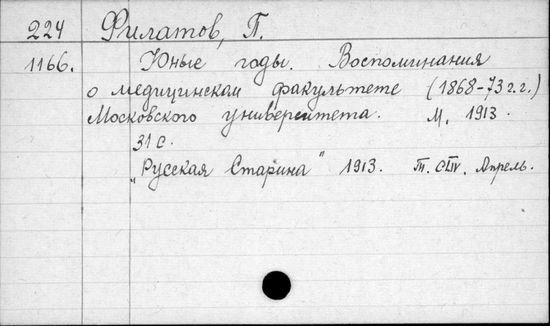 224 Филатов, П.
1166. Юные годы. Воспоминания
о медицинскам факультете (1868-73 г.г.)
Московского университета. М. 1913.
31 с.
„Русская Старина" 1913. Т. CLIV. Апрель.